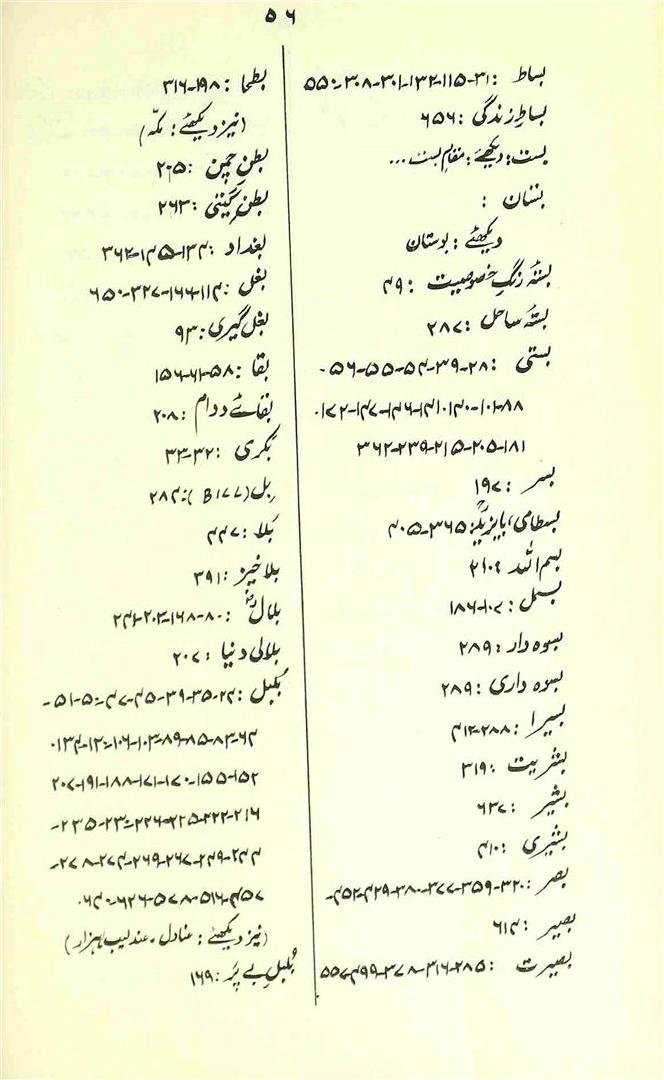 ۵۶
بساط : ۳۱-۱۱۵-۱۳۲-۳۰۱-۳۰۸-۵۵۰
بساطِ زندگی : ۶۵۶
بست : دیکھئے : مقام بست ...
بستان :
دیکھئے : بوستان
بستۂ رنگِ خصوصیت : ۴۹
بستۂ ساحل : ۲۸۷
بستی : ۲۸-۳۹-۵۴-۵۵-۵۶-
۸۸-۱۰۱-۱۴۰-۱۴۱-۱۴۶-۱۴۷-۱۷۲-
۱۸۱-۲۰۵-۲۱۵-۲۳۹-۳۶۲
بسر : ۱۹۷
بسطامی، بایزیدؒ : ۳۶۵-۴۰۵
بسم اللہ : ۲۱۰
بسمل : ۱۰۷-۱۸۶
بسوہ دار : ۲۸۹
بسوہ داری : ۲۸۹
بسیرا : ۲۸۸-۴۱۲
بشریت : ۳۱۹
بشیر : ۶۳۷
بشیری : ۴۱۰
بصر : ۳۲۰-۳۵۹-۳۷۷-۳۸۰-۴۲۹-۴۵۲-
بصیر : ۶۱۴
بصیرت : ۲۸۵-۳۱۶-۳۷۸-۴۹۹-۵۵۷
بطحا : ۱۹۸-۳۱۶
(نیز دیکھئے : مکّہ)
بطنِ چمن : ۲۰۵
بطنِ گیتی : ۲۶۳
بغداد : ۱۳۴-۱۴۵-۳۶۲
بغل : ۱۱۴-۱۶۶-۳۲۷-۶۵۰
بغل گیری : ۹۳
بقا : ۵۸-۶۱-۱۵۶
بقائے دوام : ۲۰۸
بکری : ۳۲-۳۳
بل (BILL) : ۲۸۴
بَلا : ۴۴۷
بلا خیز : ۳۹۱
بلالؓ : ۸۰-۱۶۸-۲۰۳-۲۴۱
بلالی دنیا : ۲۰۷
بُلبُل : ۲۴-۳۵-۳۹-۴۵-۴۷-۵۰-۵۱-
۶۴-۸۳-۸۵-۸۹-۱۰۳-۱۰۶-۱۲۰-۱۳۴-
۱۵۲-۱۵۵-۱۷۰-۱۷۱-۱۸۸-۱۹۱-۲۰۷
۲۱۶-۲۲۲-۲۲۵-۲۲۶-۲۳۰-۲۳۵-
۲۴۴-۲۴۹-۲۶۷-۲۶۹-۲۷۴-۲۷۸-
۴۵۷-۵۱۶-۵۷۸-۶۲۶-۶۴۰-
(نیز دیکھئے : عنادل - عندلیب ہزار)
بُلبُلِ بے پَر : ۱۶۹